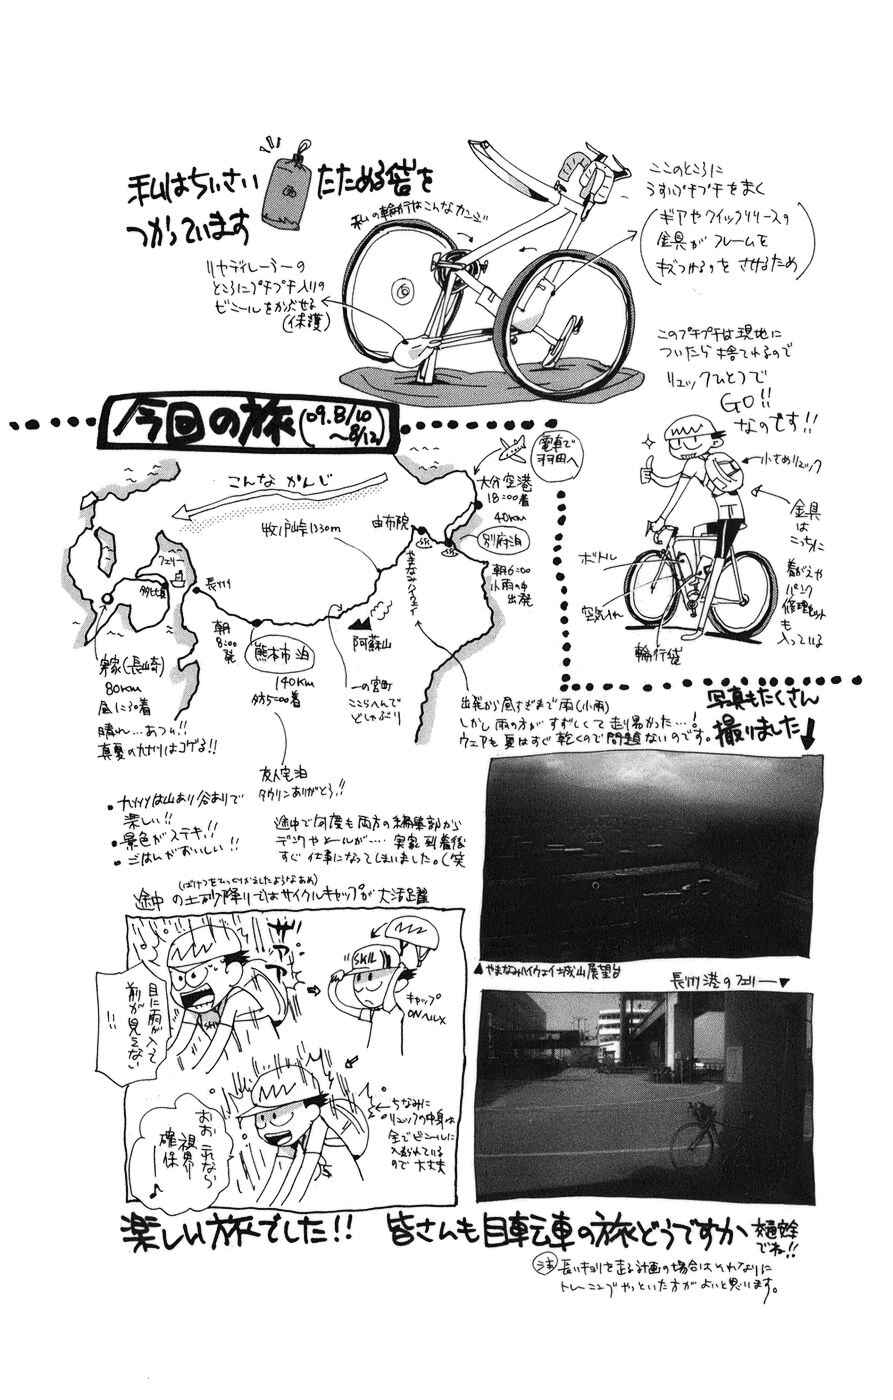 私はちいさい
たためる袋を
つかっています
私の輪行はこんなカンジ
ここのところに
うすいプチプチをまく
(ギアやクイックリリースの
金具がフレームを
キズつけるのをさけるため)
リヤディレーラーの
ところにプチプチ入りの
ビニールをかぶせる
(保護)
このプチプチは現地に
ついたら捨てれるので
リュックひとつで
GO!!
なのです!!
小さめリュック
金具は
こっちに
着がえや
パンク
修理セット
も
入っている
ボトル
空気入れ
輪行袋
今回の旅(09.8/10
〜8/12)
電車で
羽田へ
大分空港
18:00着
40km
別府泊
朝6:00
小雨の中
出発
こんなかんじ
牧ノ戸峠1330m
由布院
やまなみハイウェイ
フェリー
多比良
長洲
朝
8:00
発
熊本市泊
140km
夕方5:00着
阿蘇山
一の宮町
ここらへんで
どしゃぶり
実家(長崎)
80km
昼1:30着
晴れ…あつい!!
真夏の九州はコゲる!!
出発から昼すぎまで雨(小雨)
しかし雨の方がすずしくて走り易かった…!
ウェアも夏はすぐ乾くので問題ないのです。
写真もたくさん
撮りました
友人宅泊
タウリンありがとう!!
・九州は山あり谷ありで
楽しい!!
・景色がステキ!!
・ごはんがおいしい!!
途中で何度も両方の編集部から
デンワやメールが…実家到着後
すぐ仕事になってしまいました。(笑
(ばけつをひっくりかえしたようなあめ)
途中の土砂降りではサイクルキャップが大活躍
ザアアア
目に雨が入って
前が見えない
!!
SKIL
キャップ
ONヘルメ
おおこれなら
視界
確保
♪
ちなみに
リュックの中身は
全てビニールに
入れられている
ので大丈夫
▲やまなみハイウェイ城山展望台
長洲港のフェリー▼
楽しい旅でした!!
皆さんも自転車の旅どうですか
交通安全
でね!!
注 長いキョリを走る計画の場合はそれなりに
トレーニングやっといた方がよいと思います。